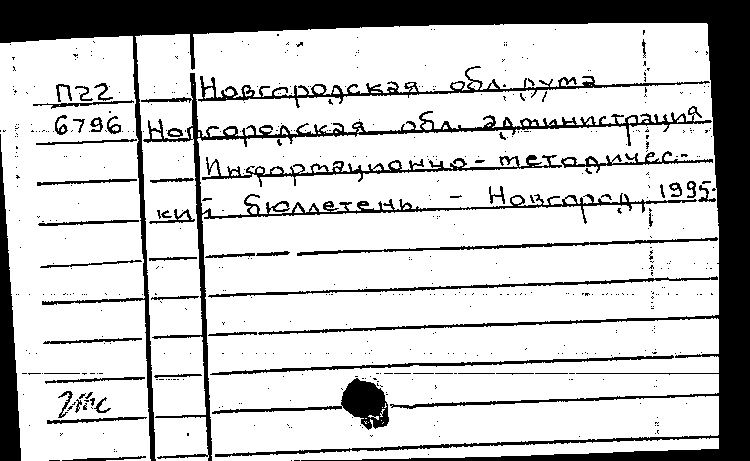 П22 Новгородская обл. дума
6796 Новгородская обл. администрация
Информационно-методичес-
кий бюллетень. - Новгород, 1995.